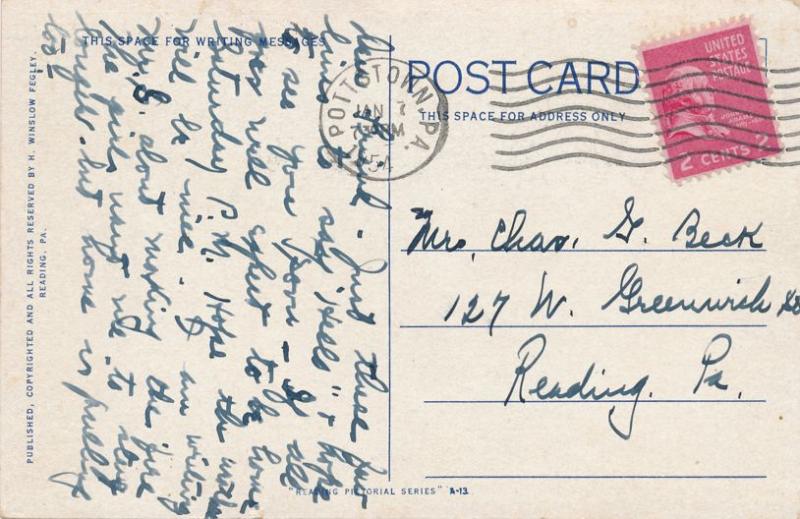 THIS SPACE FOR WRITING MESSAGES
POST CARD
THIS SPACE FOR ADDRESS ONLY
UNITED
STATES
POSTAGE
JOHN
ADAMS
2 CENTS 2
POTTSTOWN, PA.
JAN 7
PM
Mrs. Chas. G. Beck
127 W. Greenwich St
Reading. Pa.
Just these few
lines to say "Hello" & hope
to see you soon - If all
goes well expect to be home
Saturday P.M. Hope the weather
will be nice. - I am writing
this about making the fire
The girls want me to stay
longer - but home is pulling
too
PUBLISHED, COPYRIGHTED AND ALL RIGHTS RESERVED BY H. WINSLOW FEGLEY.
READING, PA.
"READING PICTORIAL SERIES" A-13